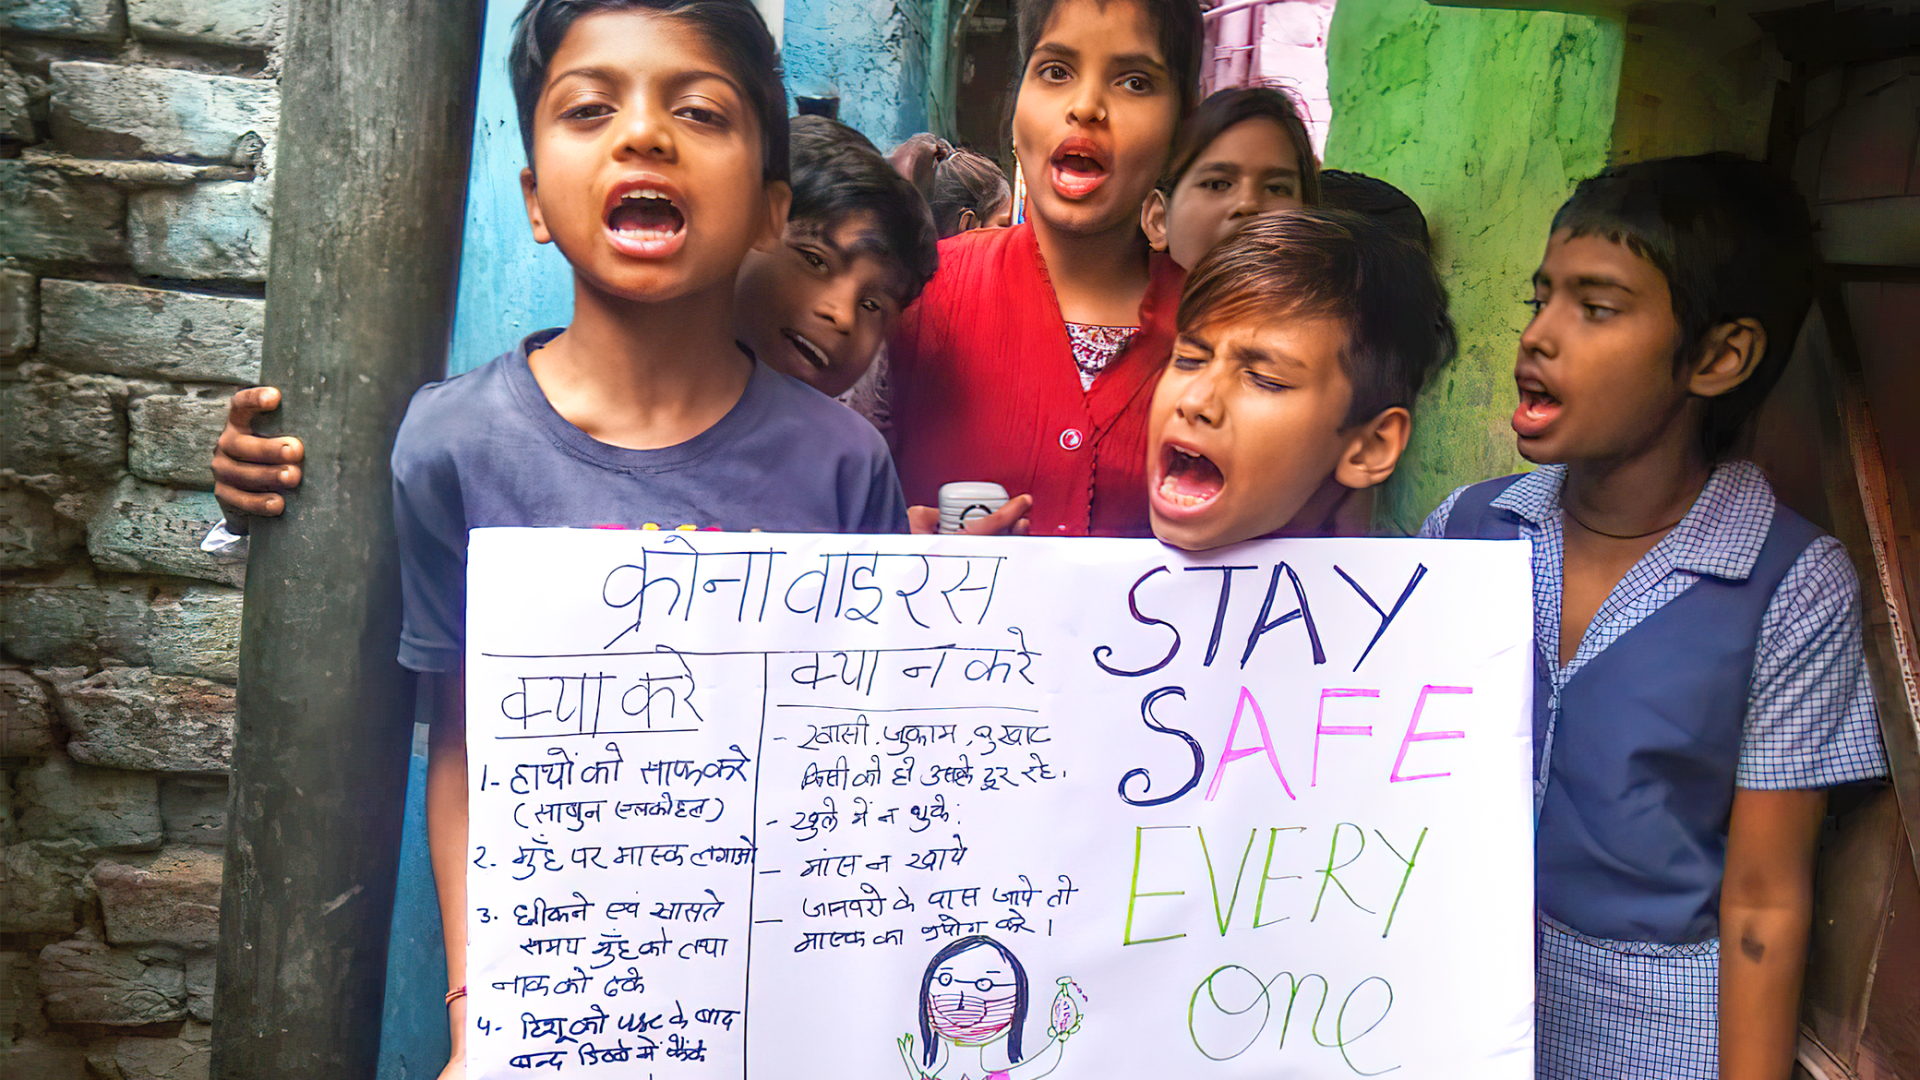 क्रोना वाइरस
क्या करे
1- हाथों को साफ करे
(साबुन एलकोहल)
2. मुँह पर मास्क लगाओ
3. छीकने एवं खासते
समय मुँह को तथा
नाक को ढके
4- टिशू को use के बाद
बन्द डिब्बे में फैंके
क्या न करे
- खासी, जुकाम, बुखार
किसी को हो उससे दूर रहे।
- खुले में न थुके।
- मांस न खाये
- जानवरो के पास जाये तो
मास्क का उपयोग करे।
STAY
SAFE
EVERY
One